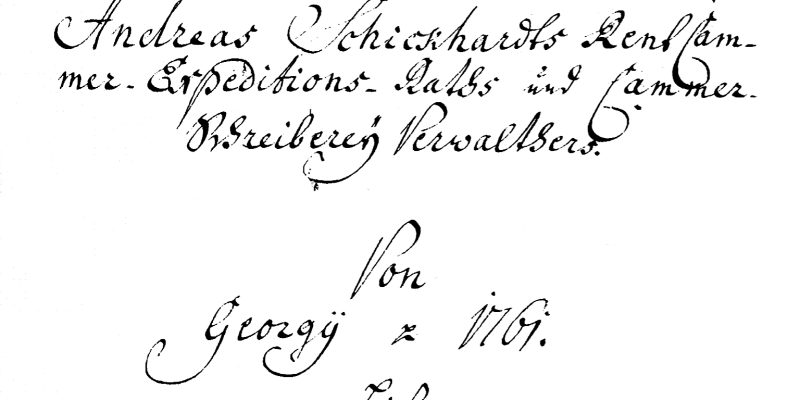 Andreas Schickhardts Rent Cam-
mer- Expeditions- Raths und Cammer-
Schreibereÿ Verwalthers.
Von
Georgÿ 1761.